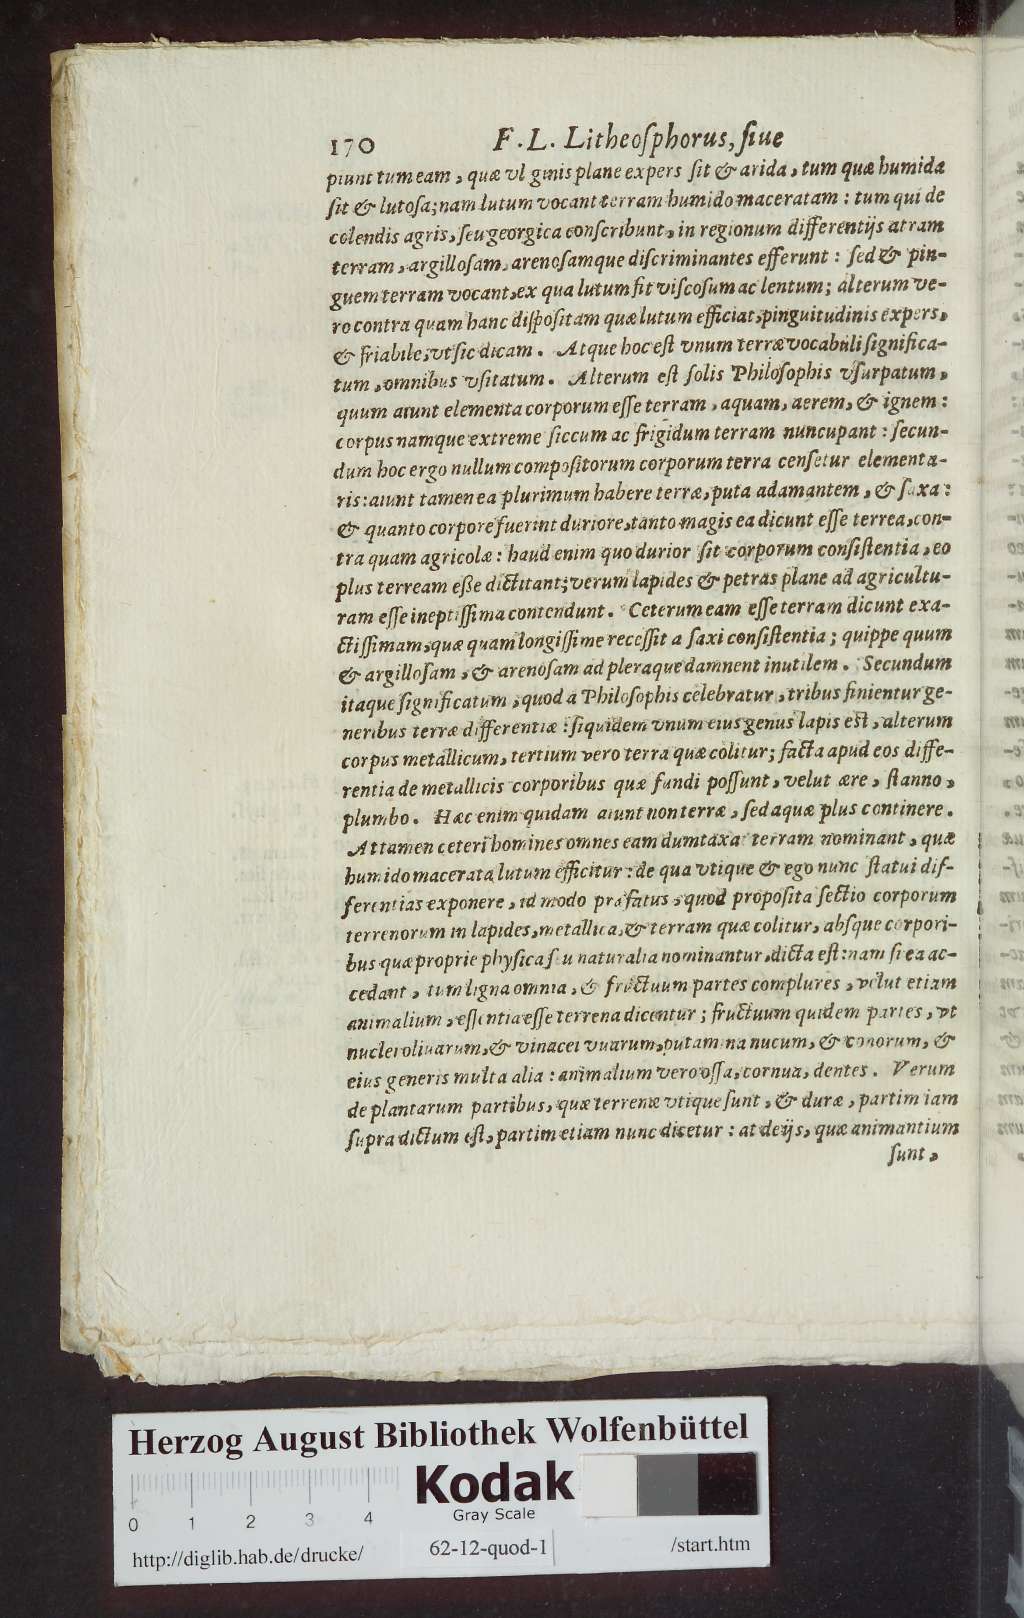 170 F. L. Litheosphorus, siue
piunt tum eam, quæ vl ginis plane expers ſit & arida, tum quæ humida
ſit & lutoſa; nam lutum vocant terram humido maceratam: tum qui de
colendis agris, ſeu georgica conſcribunt, in regionum differentijs atram
terram, argilloſam, arenoſamque diſcriminantes efferunt: ſed & pin-
guem terram vocant, ex qua lutum fit viſcoſum ac lentum; alterum ve-
ro contra quam hanc diſpoſitam quæ lutum efficiat, pinguitudinis expers,
& friabile, vt ſic dicam. Atque hoc eſt vnum terræ vocabuli ſignifica-
tum, omnibus vſitatum. Alterum eſt ſolis Philoſophis vſurpatum,
quum aiunt elementa corporum eſſe terram, aquam, aerem, & ignem:
corpus namque extreme ſiccum ac frigidum terram nuncupant: ſecun-
dum hoc ergo nullum compoſitorum corporum terra cenſetur elementa-
ris: aiunt tamen ea plurimum habere terræ, puta adamantem, & ſaxa:
& quanto corpore fuerint duriore, tanto magis ea dicunt eſſe terrea, con-
tra quam agricolæ: haud enim quo durior ſit corporum conſiſtentia, eo
plus terream eſſe dictitant; verum lapides & petras plane ad agricultu-
ram eſſe ineptiſſima contendunt. Ceterum eam eſſe terram dicunt exa-
ctiſſimam, quæ quam longiſſime receſſit a ſaxi conſiſtentia; quippe quum
& argilloſam, & arenoſam ad pleraque damnent inutilem. Secundum
itaque ſignificatum, quod a Philoſophis celebratur, tribus finientur ge-
neribus terræ differentiæ: ſiquidem vnum eius genus lapis eſt, alterum
corpus metallicum, tertium vero terra quæ colitur; facta apud eos diffe-
rentia de metallicis corporibus quæ fundi poſſunt, velut ære, ſtanno,
plumbo. Hæc enim quidam aiunt non terræ, ſed aquæ plus continere.
Attamen ceteri homines omnes eam dumtaxat terram nominant, quæ
humido macerata lutum efficitur: de qua vtique & ego nunc ſtatui dif-
ferentias exponere, id modo præfatus, quod propoſita ſectio corporum
terrenorum in lapides, metallica, & terram quæ colitur, abſque corpori-
bus quæ proprie phyſica ſeu naturalia nominantur, dicta eſt: nam ſi ea ac-
cedant, tum ligna omnia, & fructuum partes complures, velut etiam
animalium, eſſentia eſſe terrena dicentur; fructuum quidem partes, vt
nuclei oliuarum, & vinacei vuarum, putamina nucum, & conorum, &
eius generis multa alia: animalium vero oſſa, cornua, dentes. Verum
de plantarum partibus, quæ terrenæ vtique ſunt, & duræ, partim iam
ſupra dictum eſt, partim etiam nunc dicetur: at de ijs, quæ animantium
ſunt,
Herzog August Bibliothek Wolfenbüttel
Kodak
Gray Scale
0 1 2 3 4
http://diglib.hab.de/drucke/ 62-12-quod-1 /start.htm